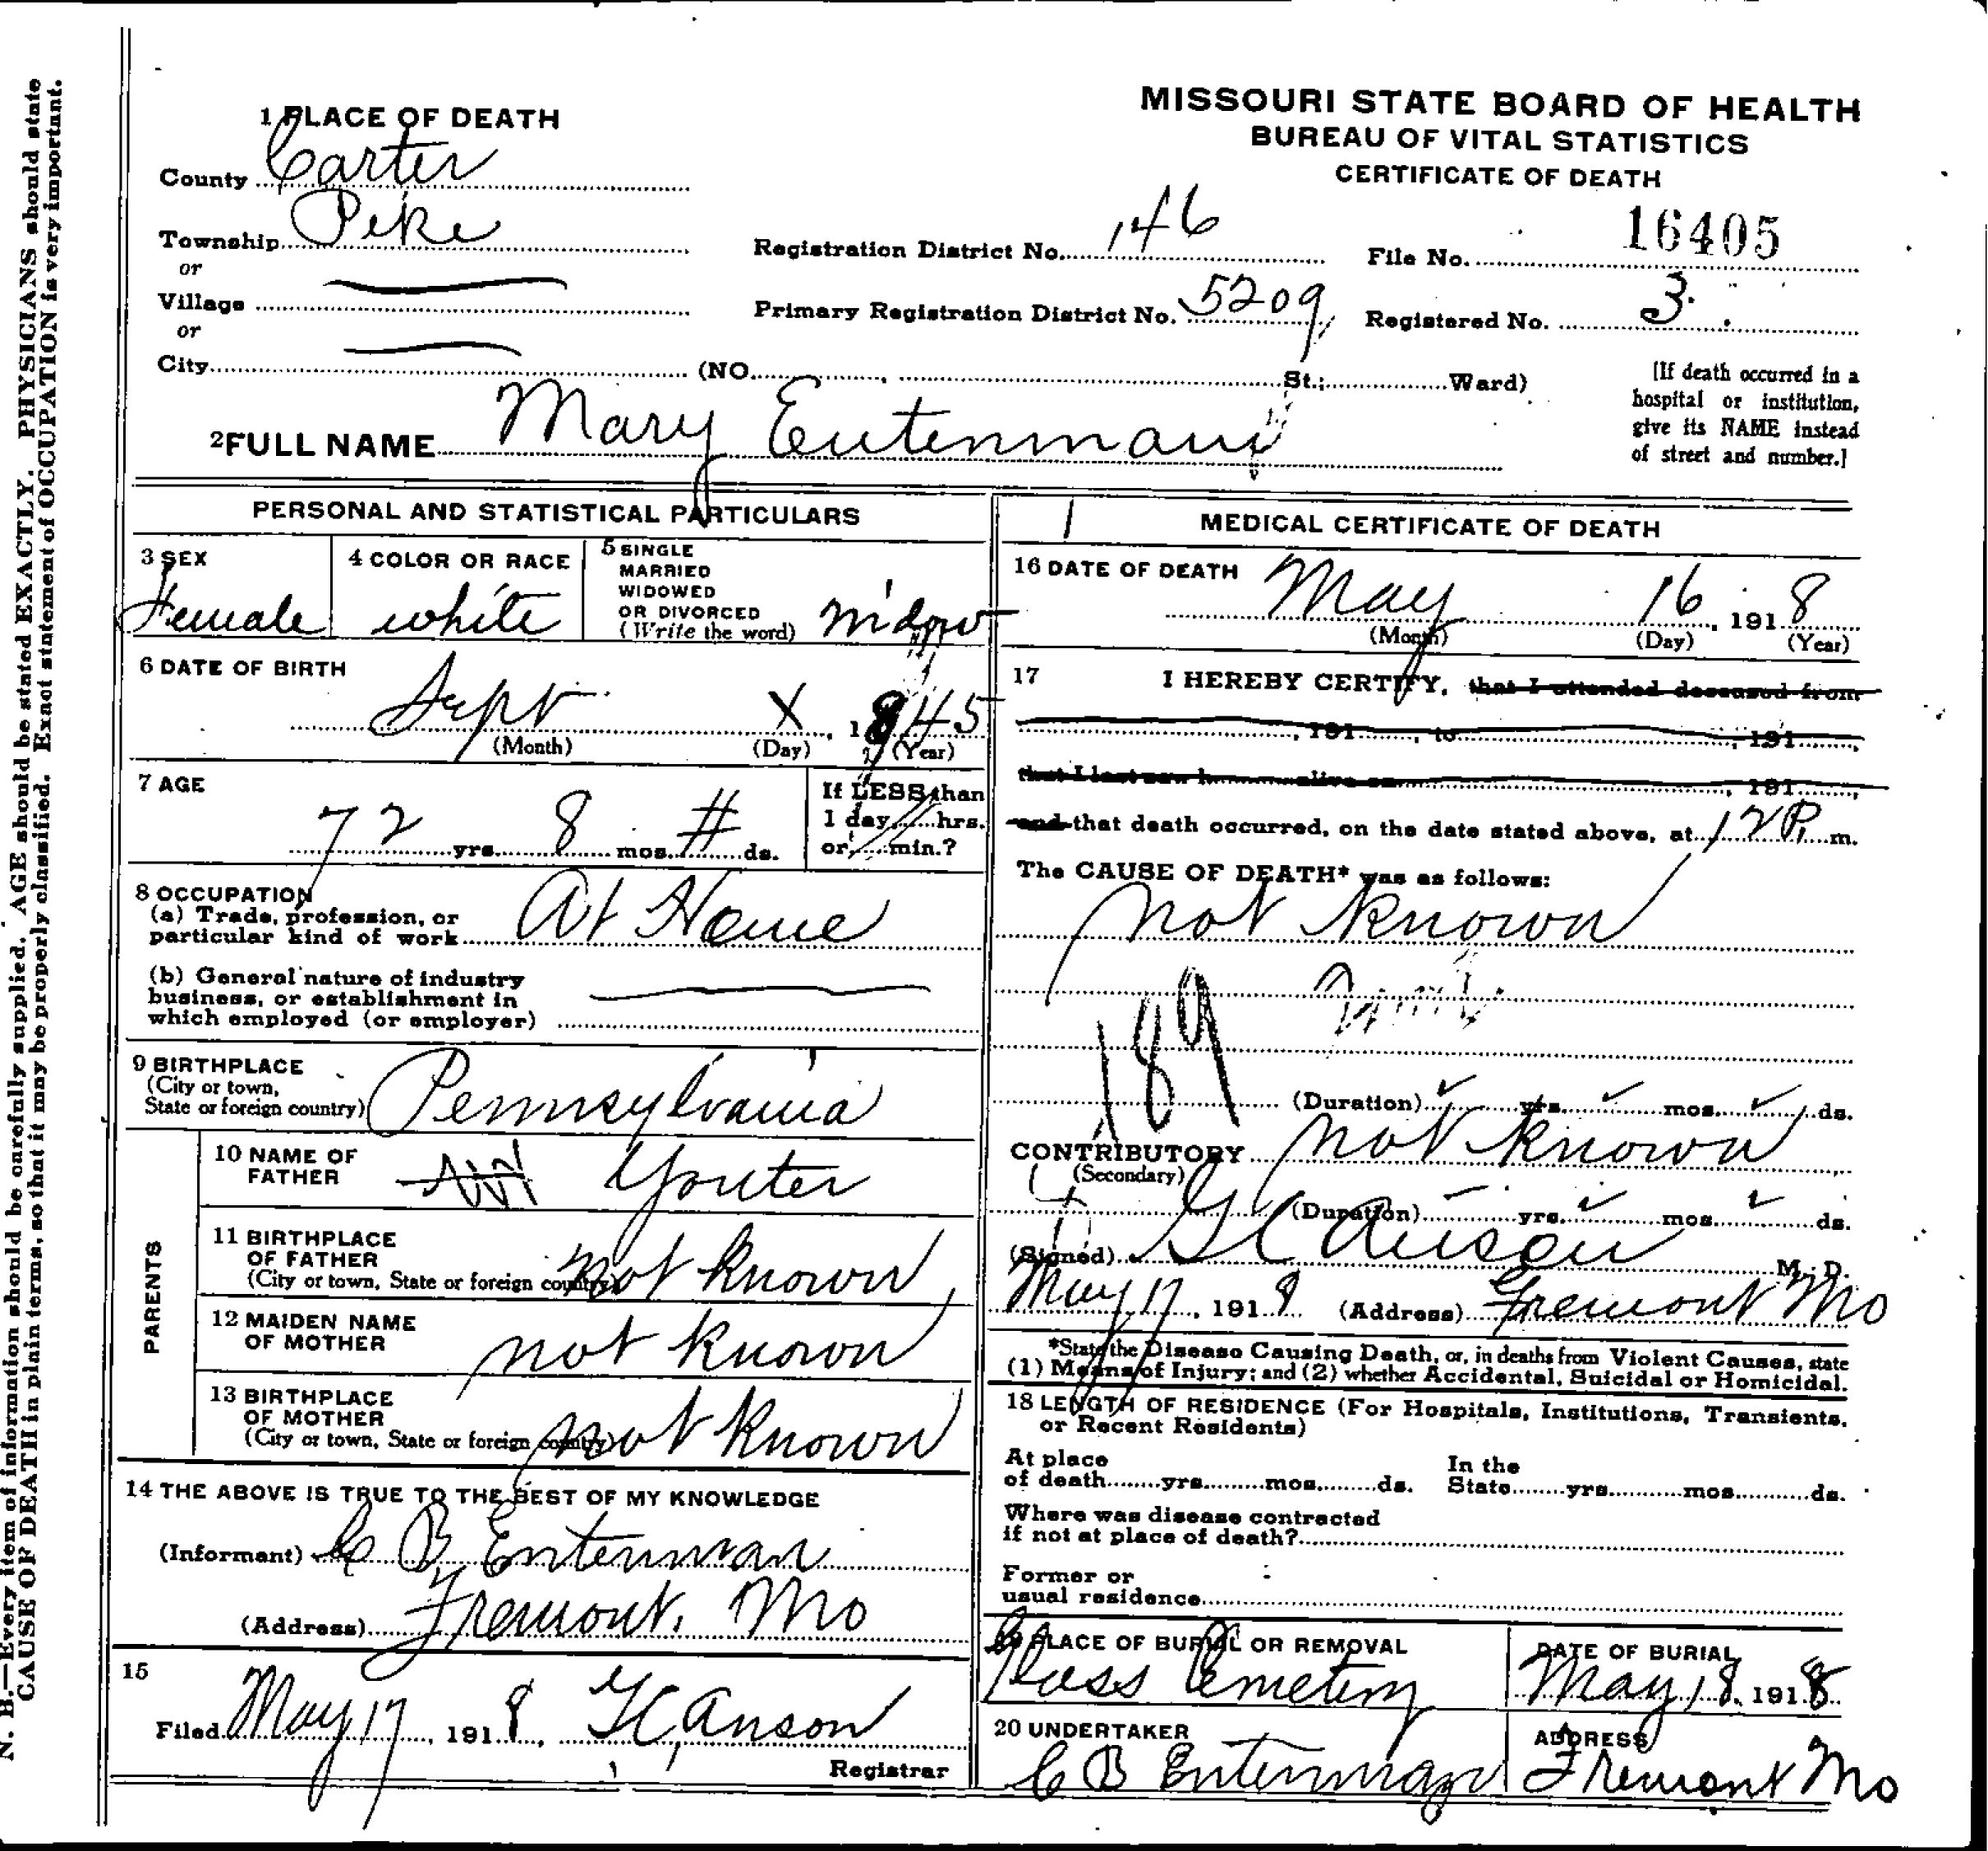 MISSOURI STATE BOARD OF HEALTH
BUREAU OF VITAL STATISTICS
CERTIFICATE OF DEATH
1 PLACE OF DEATH
County Carter
Township Pike
or
Village
or
City (NO. St.; Ward)
Registration District No. 146
File No. 16405
Primary Registration District No. 5209
Registered No. 3
[If death occurred in a
hospital or institution,
give its NAME instead
of street and number.]
2 FULL NAME Mary Eutenmann
PERSONAL AND STATISTICAL PARTICULARS
3 SEX
Female
4 COLOR OR RACE
white
5 SINGLE
MARRIED
WIDOWED
OR DIVORCED
(Write the word) Widow
6 DATE OF BIRTH
Sept X, 1845
(Month) (Day) (Year)
7 AGE
72 yrs. 8 mos. # ds.
If LESS than
1 day, hrs.
or min.?
8 OCCUPATION
(a) Trade, profession, or
particular kind of work At Home
(b) General nature of industry
business, or establishment in
which employed (or employer)
9 BIRTHPLACE
(City or town,
State or foreign country) Pennsylvania
PARENTS
10 NAME OF
FATHER Youter
11 BIRTHPLACE
OF FATHER
(City or town, State or foreign country) not known
12 MAIDEN NAME
OF MOTHER not known
13 BIRTHPLACE
OF MOTHER
(City or town, State or foreign country) not known
14 THE ABOVE IS TRUE TO THE BEST OF MY KNOWLEDGE
(Informant) C B Entenman
(Address) Fremont, Mo
15
Filed May 17, 1918, Anson
Registrar
MEDICAL CERTIFICATE OF DEATH
16 DATE OF DEATH
May 16, 1918
(Month) (Day) (Year)
17 I HEREBY CERTIFY, that I attended deceased from
, 191 , to , 191 ,
that I last saw h alive on , 191 ,
and that death occurred, on the date stated above, at 12 P. m.
The CAUSE OF DEATH* was as follows:
not known
189
(Duration) yrs. mos. ds.
CONTRIBUTORY not known
(Secondary)
(Duration) yrs. mos. ds.
(Signed) Anson M. D.
May 17, 1918 (Address) Fremont Mo
*State the Disease Causing Death, or, in deaths from Violent Causes, state
(1) Means of Injury; and (2) whether Accidental, Suicidal or Homicidal.
18 LENGTH OF RESIDENCE (For Hospitals, Institutions, Transients,
or Recent Residents)
At place
of death yrs. mos. ds. In the
State yrs. mos. ds.
Where was disease contracted
if not at place of death?
Former or
usual residence
19 PLACE OF BURIAL OR REMOVAL
Cemetery
DATE OF BURIAL
May 18, 1918
20 UNDERTAKER
C B Entenman
ADDRESS
Fremont Mo
N. B.—Every item of information should be carefully supplied. AGE should be stated EXACTLY. PHYSICIANS should state
CAUSE OF DEATH in plain terms, so that it may be properly classified. Exact statement of OCCUPATION is very important.